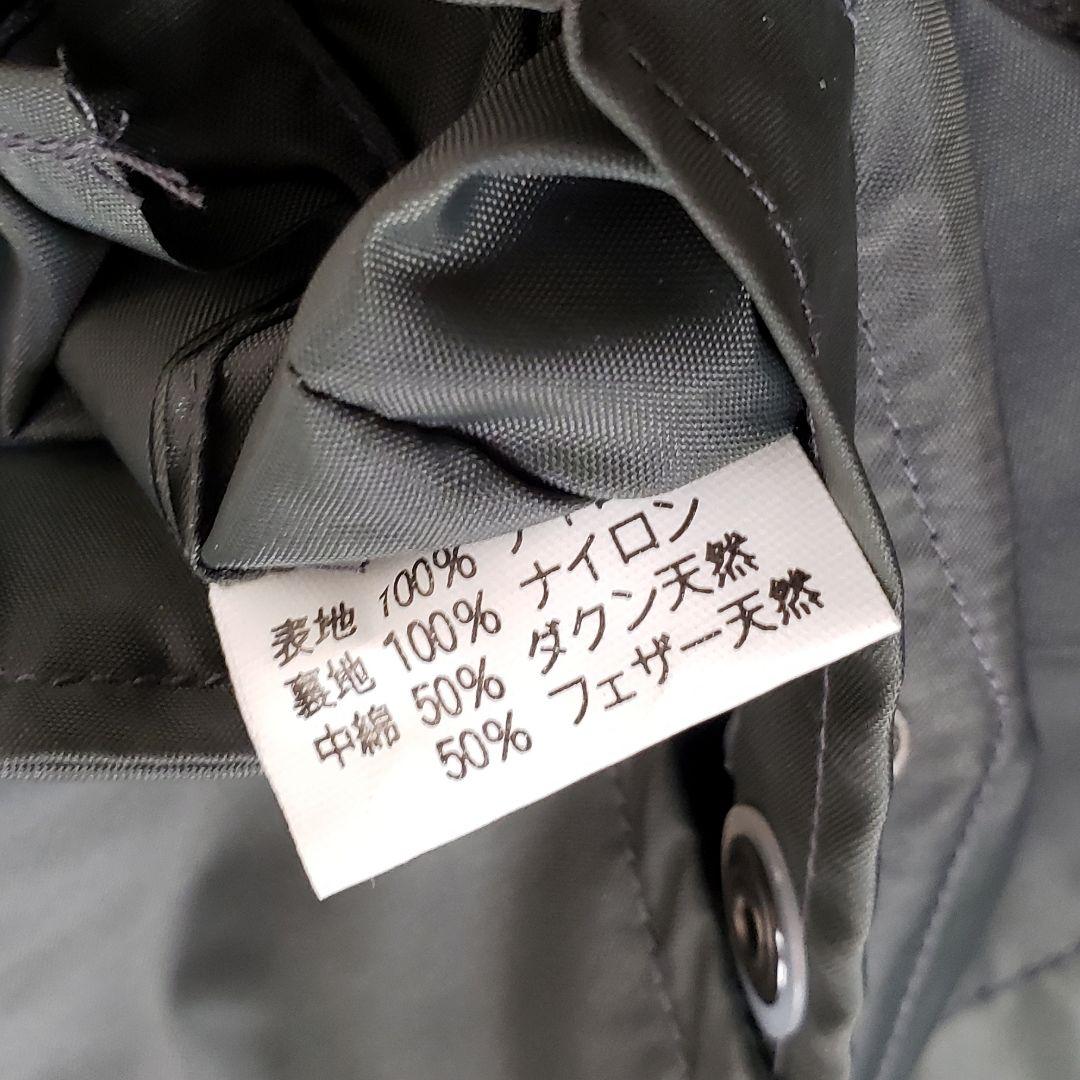 表地 100%
裏地 100% ナイロン
中綿 50% ダクン天然
50% フェザー天然